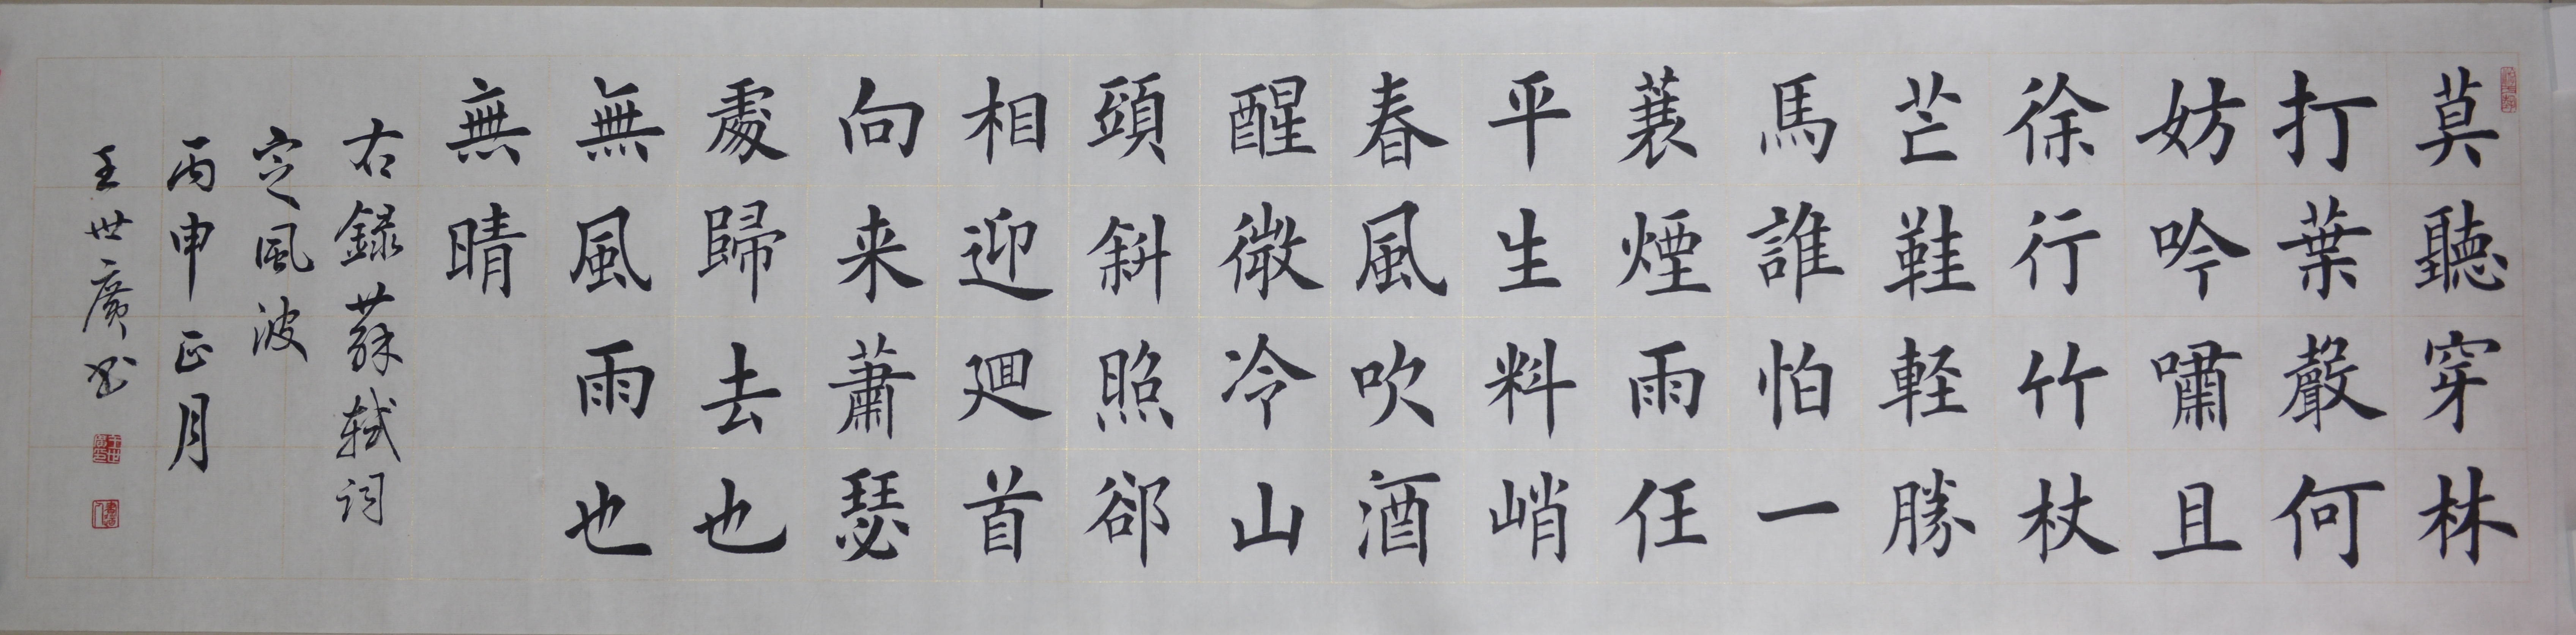 莫聽穿林
打葉聲何
妨吟嘯且
徐行竹杖
芒鞋軽勝
馬誰怕一
蓑煙雨任
平生料峭
春風吹酒
醒微冷山
頭斜照郤
相迎迴首
向来蕭瑟
處歸去也
無風雨也
無晴
右録蘇軾词
定風波
丙申正月
王世廣书